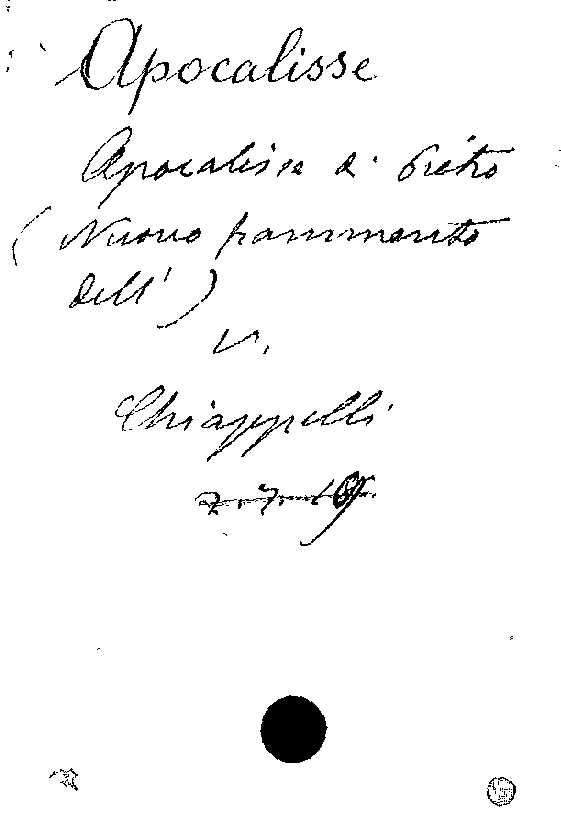 Apocalisse
Apocalisse di Pietro
(Nuovo frammento
dell')
V.
Chiappelli